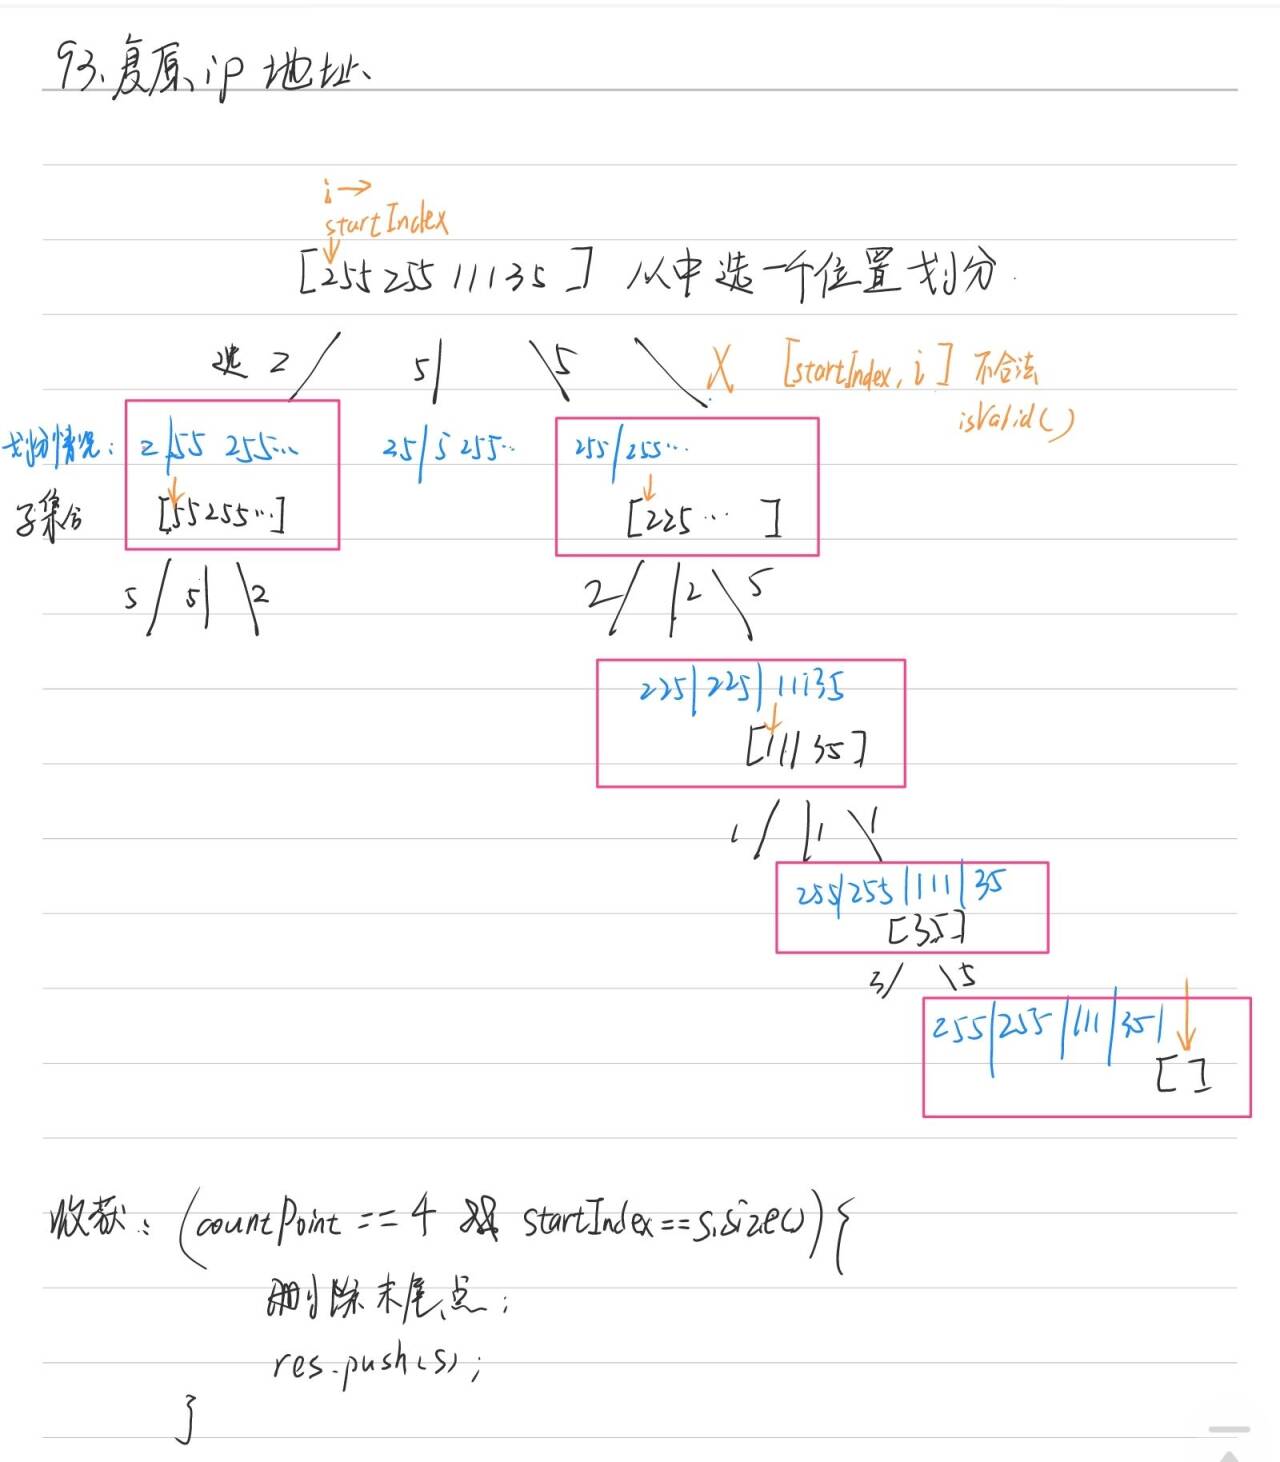 93.复原ip地址
i→
startIndex
[255 255 111 35] 从中选一个位置划分.
选 2/ 5| \5 \ X [startIndex, i] 不合法
isValid()
划分情况: 2/55 255... 25/5 255... 255/255...
子集合 [55 255...] [225... ]
5/ 5| \2 2/ |2 \5
225|225|11135
[111 35]
1/ |1 \1
255|255|111|35
[35]
3/ \5
255|255|111|35|
[]
收获: (countPoint == 4 && startIndex == s.size()) {
删除末尾点;
res.push(s);
}